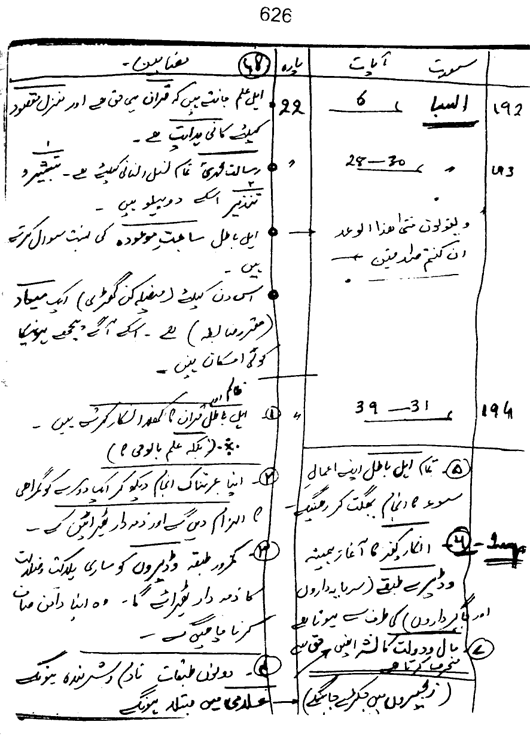 626
سورت آیات پارہ (48) مضامین۔
192 السبا 6 22 اہل علم جانتے ہیں کہ قرآن ہی حق ہے اور منزل مقصود
کیلئے کافی ہدایت ہے۔
193 〃 28—30 〃 رسالت محمدیؐ تمام نسل انسانی کیلئے ہے۔ تبشیر و
تنذیر اسکے دو پہلو ہیں۔
ویقولون متی ھذا الوعد
ان کنتم صٰدقین
اہل باطل ساعت موعودہ کی نسبت سوال کرتے
ہیں۔
اس دن کیلئے (فیصلہ کن گھڑی) ایک میعاد
(مقرر ضابطہ) ہے۔ اسکے آگے پیچھے ہونیکا
کوئی امکان نہیں۔
194 31—39 〃 ①۔ اہل باطل قرآن کا کھلا انکار کرتے ہیں۔
(بلکہ علم بالوحی کا)
②۔ اپنا عبرتناک انجام دیکھ کر ایک دوسرے کو گمراہی
کا الزام دیں گے اور ذمہ دار ٹھہرائیں گے۔
③۔ کمزور طبقہ وڈیروں کو ساری ہلاکت
کا ذمہ دار ٹھہرائے گا۔ وہ اپنا دامن صاف
کرنا چاہیں گے۔
④۔ دونوں طبقات نادم و شرمندہ ہونگے
میں مبتلا ہونگے
⑤۔ تمام اہل باطل اپنے اعمال
سوء کا انجام بھگت کر رہینگے۔
Imp ⑥۔ انکار کفر کا آغاز ہمیشہ
وڈیرے طبقے (سرمایہ داروں
اور جاگیرداروں) کی طرف سے ہوتا ہے
⑦۔ مال و دولت کا نشہ انہیں حق سے
منحرف کرتا ہے
(زنجیروں میں جکڑے جائینگے)